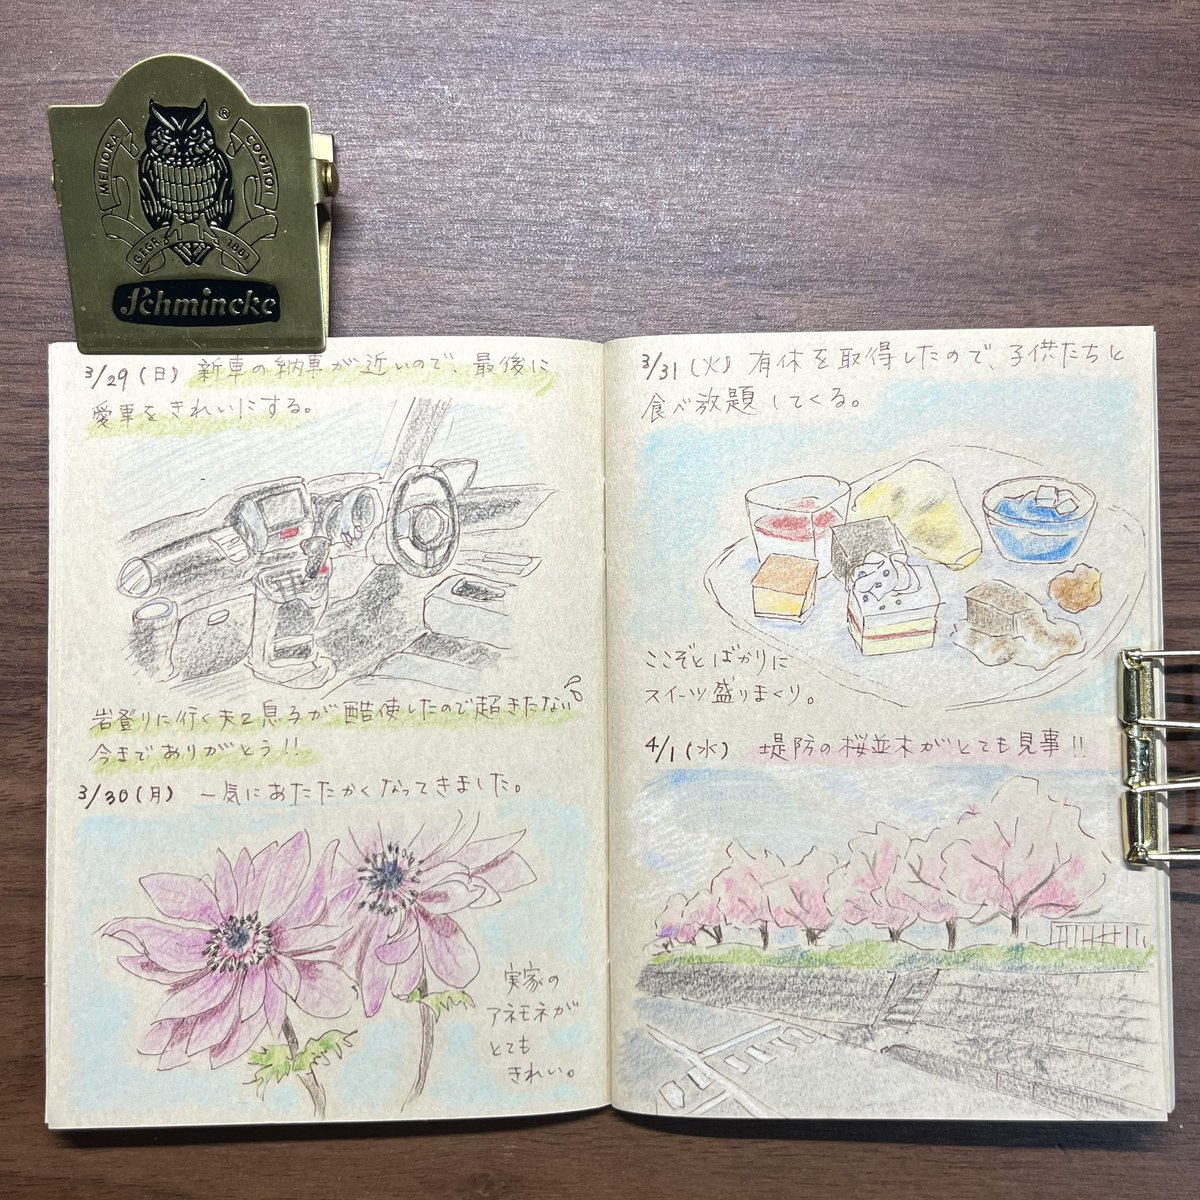 MELIORA COGITOI
GEGR 1881
Schmincke
3/29(日) 新車の納車が近いので、最後に
愛車をきれいにする。
岩登りに行く夫と息子が酷使したので超きたない
今までありがとう!!
3/30(月) 一気にあたたかくなってきました。
実家の
アネモネが
とても
きれい。
3/31(火) 有休を取得したので、子供たちと
食べ放題してくる。
ここぞとばかりに
スイーツ盛りまくり。
4/1(水) 堤防の桜並木がとても見事!!